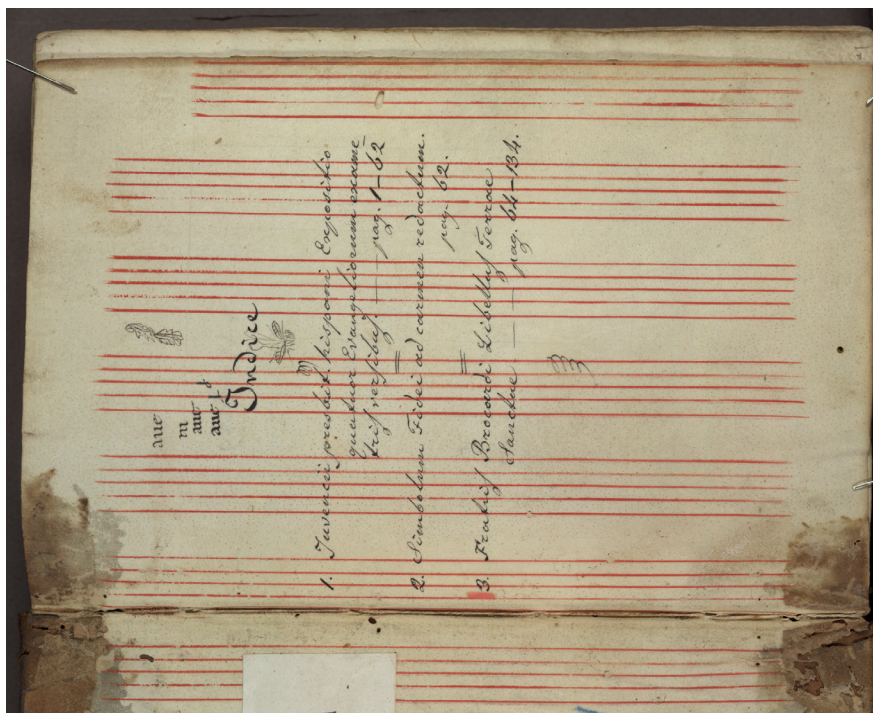 aue
m
aue
aue
Indice
1. Juvencii presbit. hispani Expositio
quatuor Evangeliorum examē
triſ verſibuſ. — — pag. 1–62
2. Simbolum Fidei ad carmen redactum.
pag. 62.
3. Fratriſ Brocardi Libelluſ Terrae
Sanctae — — pag. 64–134.